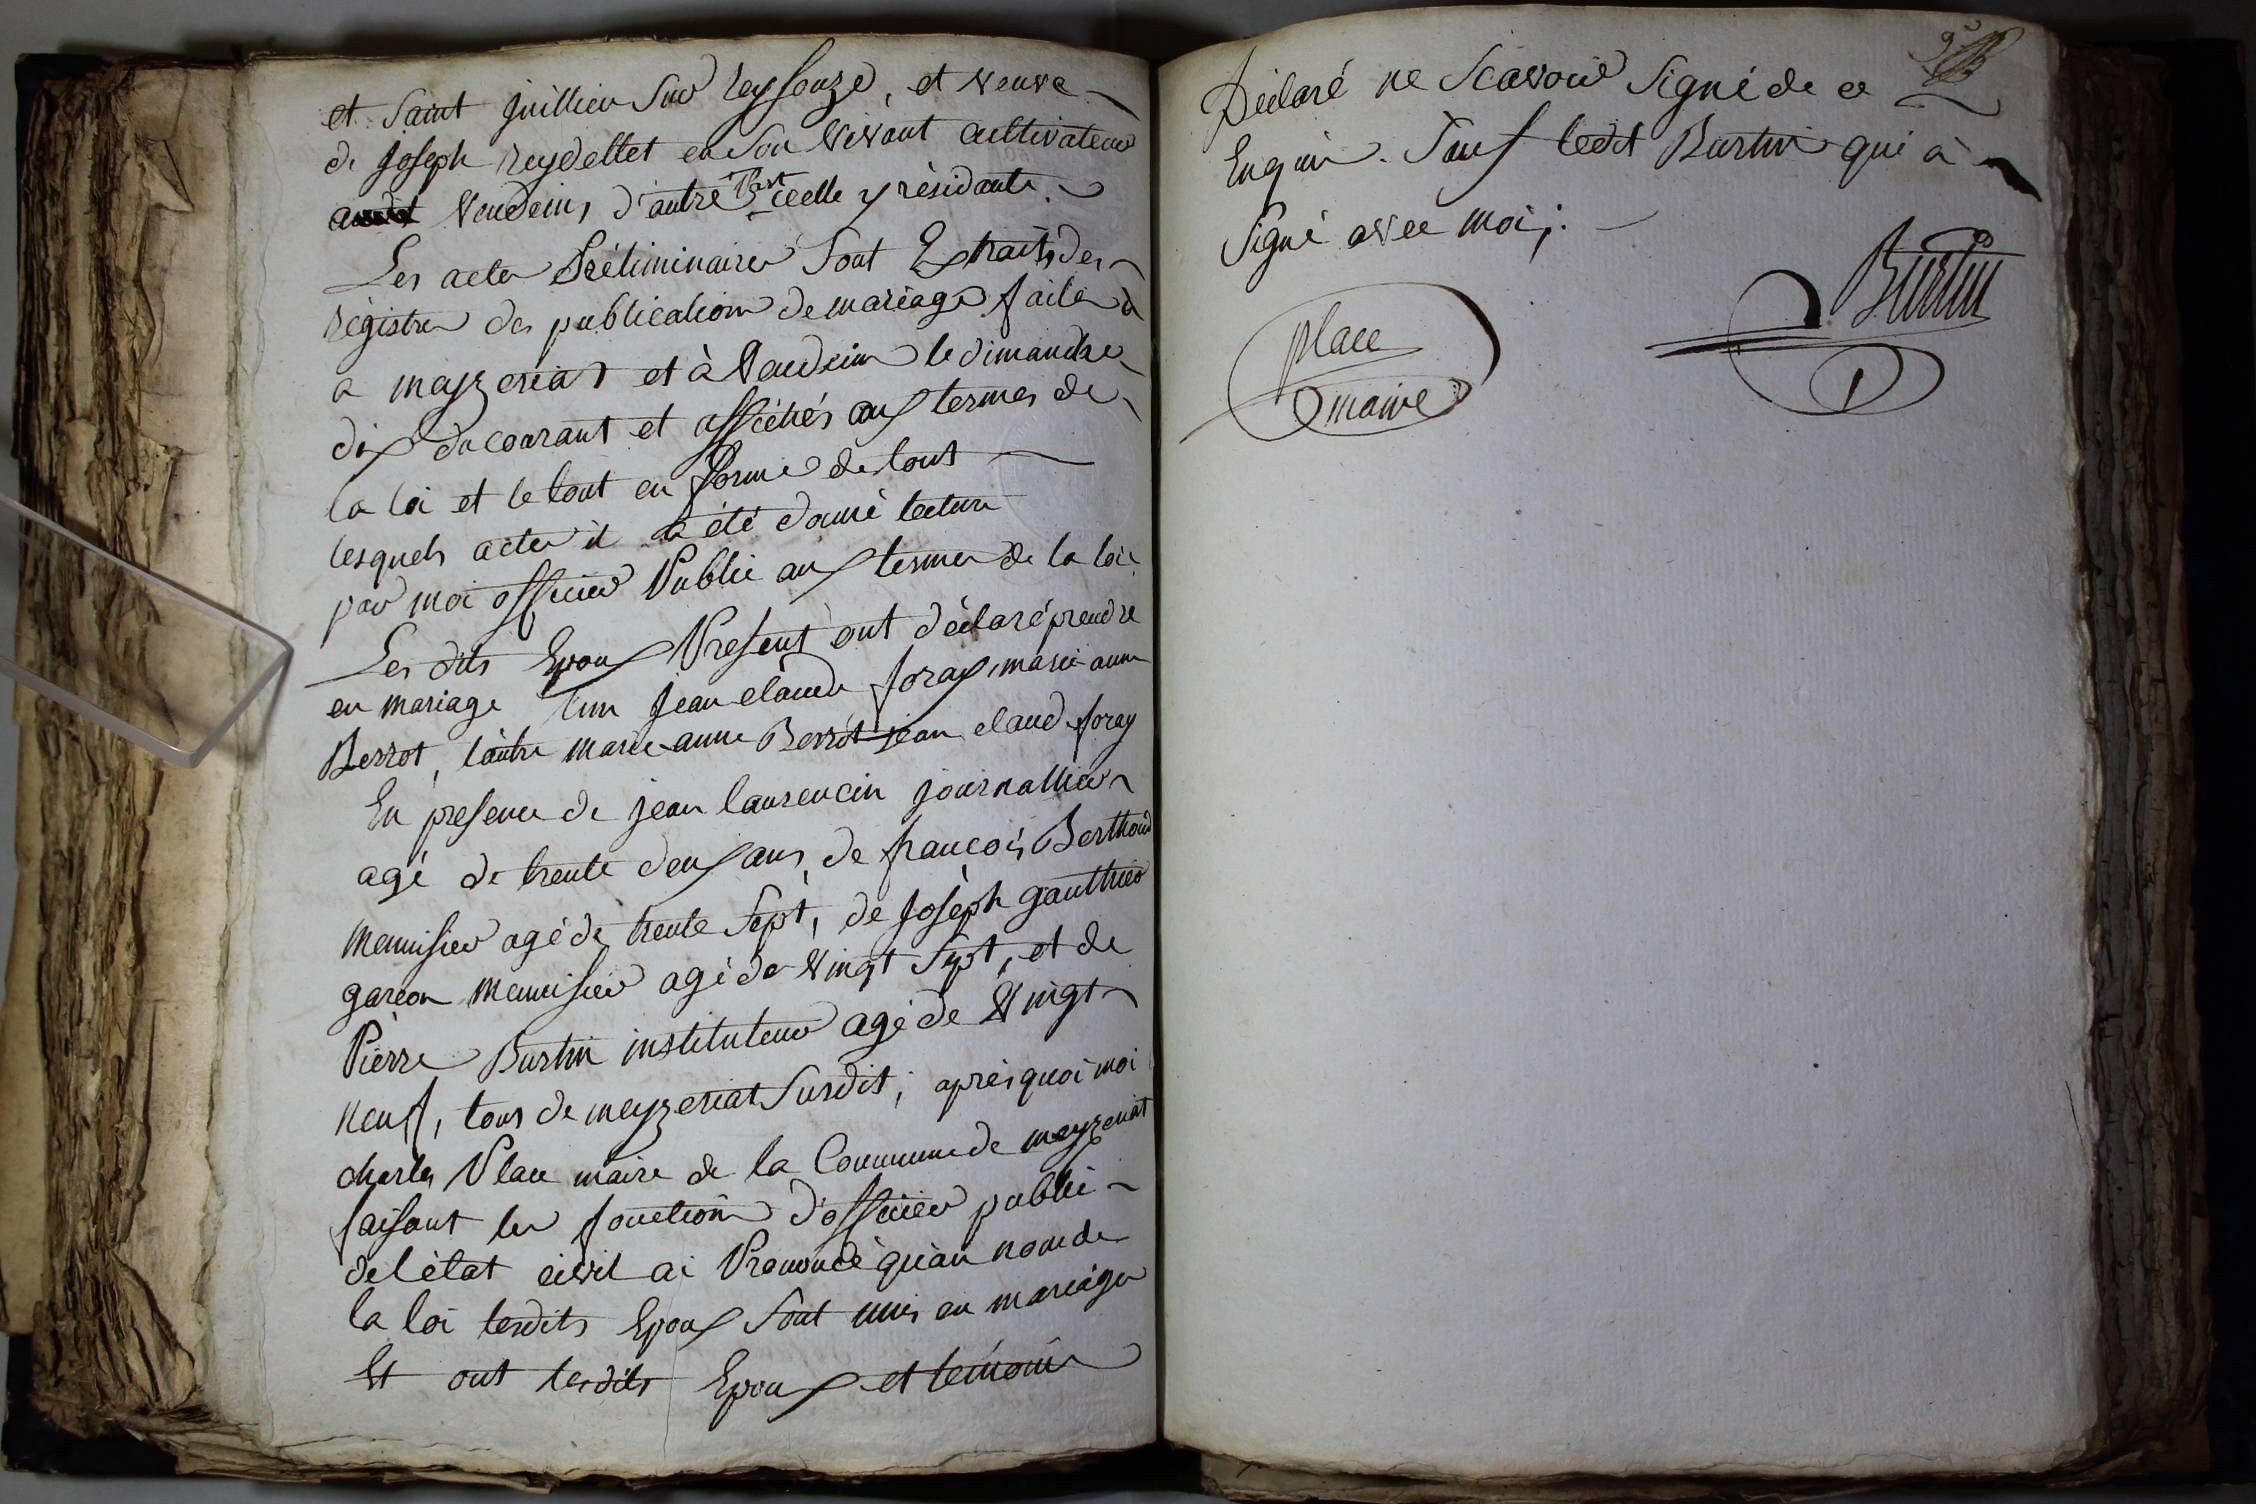 et Saint juillien Sur Reyssouze, et veuve
de Joseph reydellet en Son vivant cultivateur
audit Vendeins, d'autre Part icelle y résidante.
Les actes Préliminaires Sont Extraits des
régistres des publications de mariage faites à
a meyzeriat et à Vendeins le dimanche
dix du courant et affichés aux termes de
la loi et le tout en forme de tout
lesquels actes il a été donné lecture
par moi officier Public aux termes de la loi
Les dits Epoux Present ont déclaré prendre
en mariage l'un jean claude foray, marie anne
Berrot, l'autre marie anne Berrot jean claud foray
En presence de jean laurencin journallier
agé de trente deux ans, de francois Berthoud
menuisier agé de trente Sept, de Joséph gauthier
garcon menuisier agé de vingt Sept, et de
Piérre Burtin instituteur agé de vingt
neuf, tous de meyzeriat Susdit; après quoi moi
charles Place maire de la Commune de meyzeriat
faisant les fonctions d'officier public
de l'état civil ai Prononcé qu'au nom de
la loi lesdits Epoux Sont unis en mariage
Et ont lesdits Epoux et temoins
Déclaré ne Scavoir Signé de ce
Enquis. Sauf ledit Burtin qui à
Signé avec moi;.
Burtin
place
maire